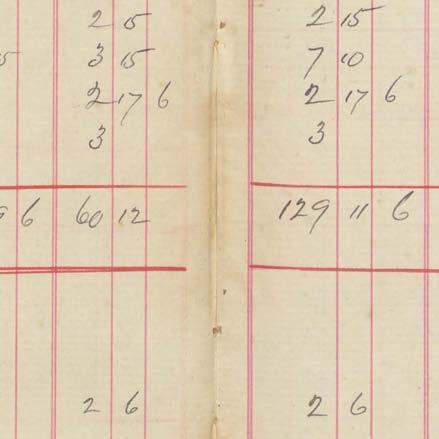 2 15 2 15
5 3 15 7 10
2 17 6 2 17 6
3 3
6 60 12 129 11 6
2 6 2 6